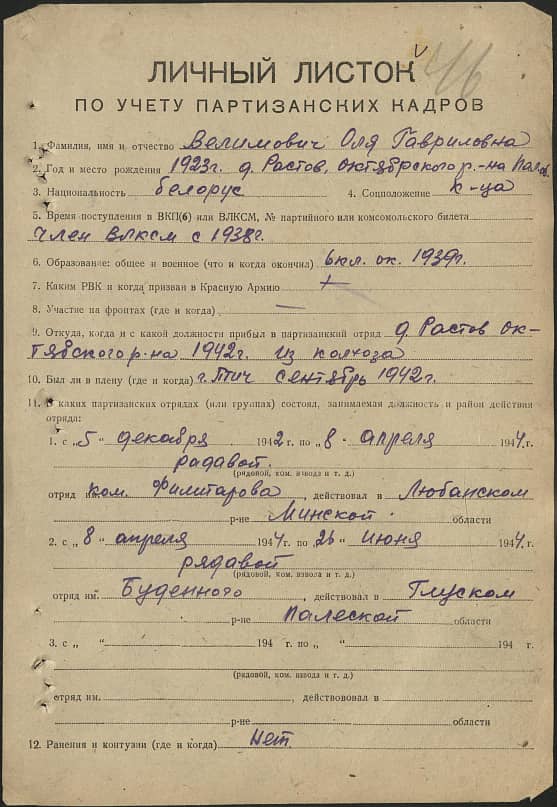 46
ЛИЧНЫЙ ЛИСТОК
ПО УЧЕТУ ПАРТИЗАНСКИХ КАДРОВ
1. Фамилия, имя и отчество Велимович Оля Гавриловна
2. Год и место рождения 1923г. д. Растов, октябрского р.-на Палес.
3. Национальность белорус 4. Соцположение к-ца
5. Время поступления в ВКП(б) или ВЛКСМ, № партийного или комсомольского билета
член ВЛКСМ с 1938г.
6. Образование: общее и военное (что и когда окончил) 6 кл. ок. 1939г.
7. Каким РВК и когда призван в Красную Армию +
8. Участие на фронтах (где и когда) —
9. Откуда, когда и с какой должности прибыл в партизанкий отряд д. Растов ок-
тябвского р-на 1942г. из колхоза
10. Был ли в плену (где и когда) г. Птич сентябрь 1942г.
11. В каких партизанских отрядах (или группах) состоял, занимаемая должность и район действия
отряда:
1. с „5" декабря 1942 г. по „8" апреля 1944 г.
радавой.
(рядовой, ком. взвода и т. д.)
отряд ком. Филитарова, действовал в Любанском
р-не Минской области
2. с „8" апреля 1944 г. по 26" июня 1944 г.
рядавой
(рядовой, ком. взвола и т. д.)
отряд им. Буденного, действовал в Глуском
р-не Палеской области
3. с „ " 194 г. по „ " 194 г.
(рядовой, ком. взвода и т. д.)
отряд им. , действововал в
р-не области
12. Ранения и контузии (где и когда) Нет